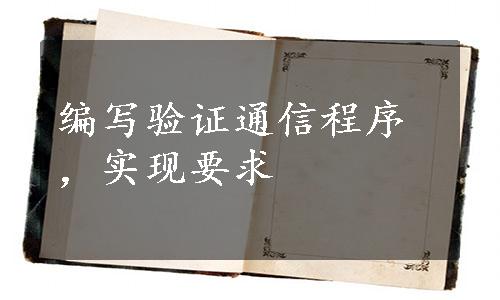 编写验证通信程序
，实现要求